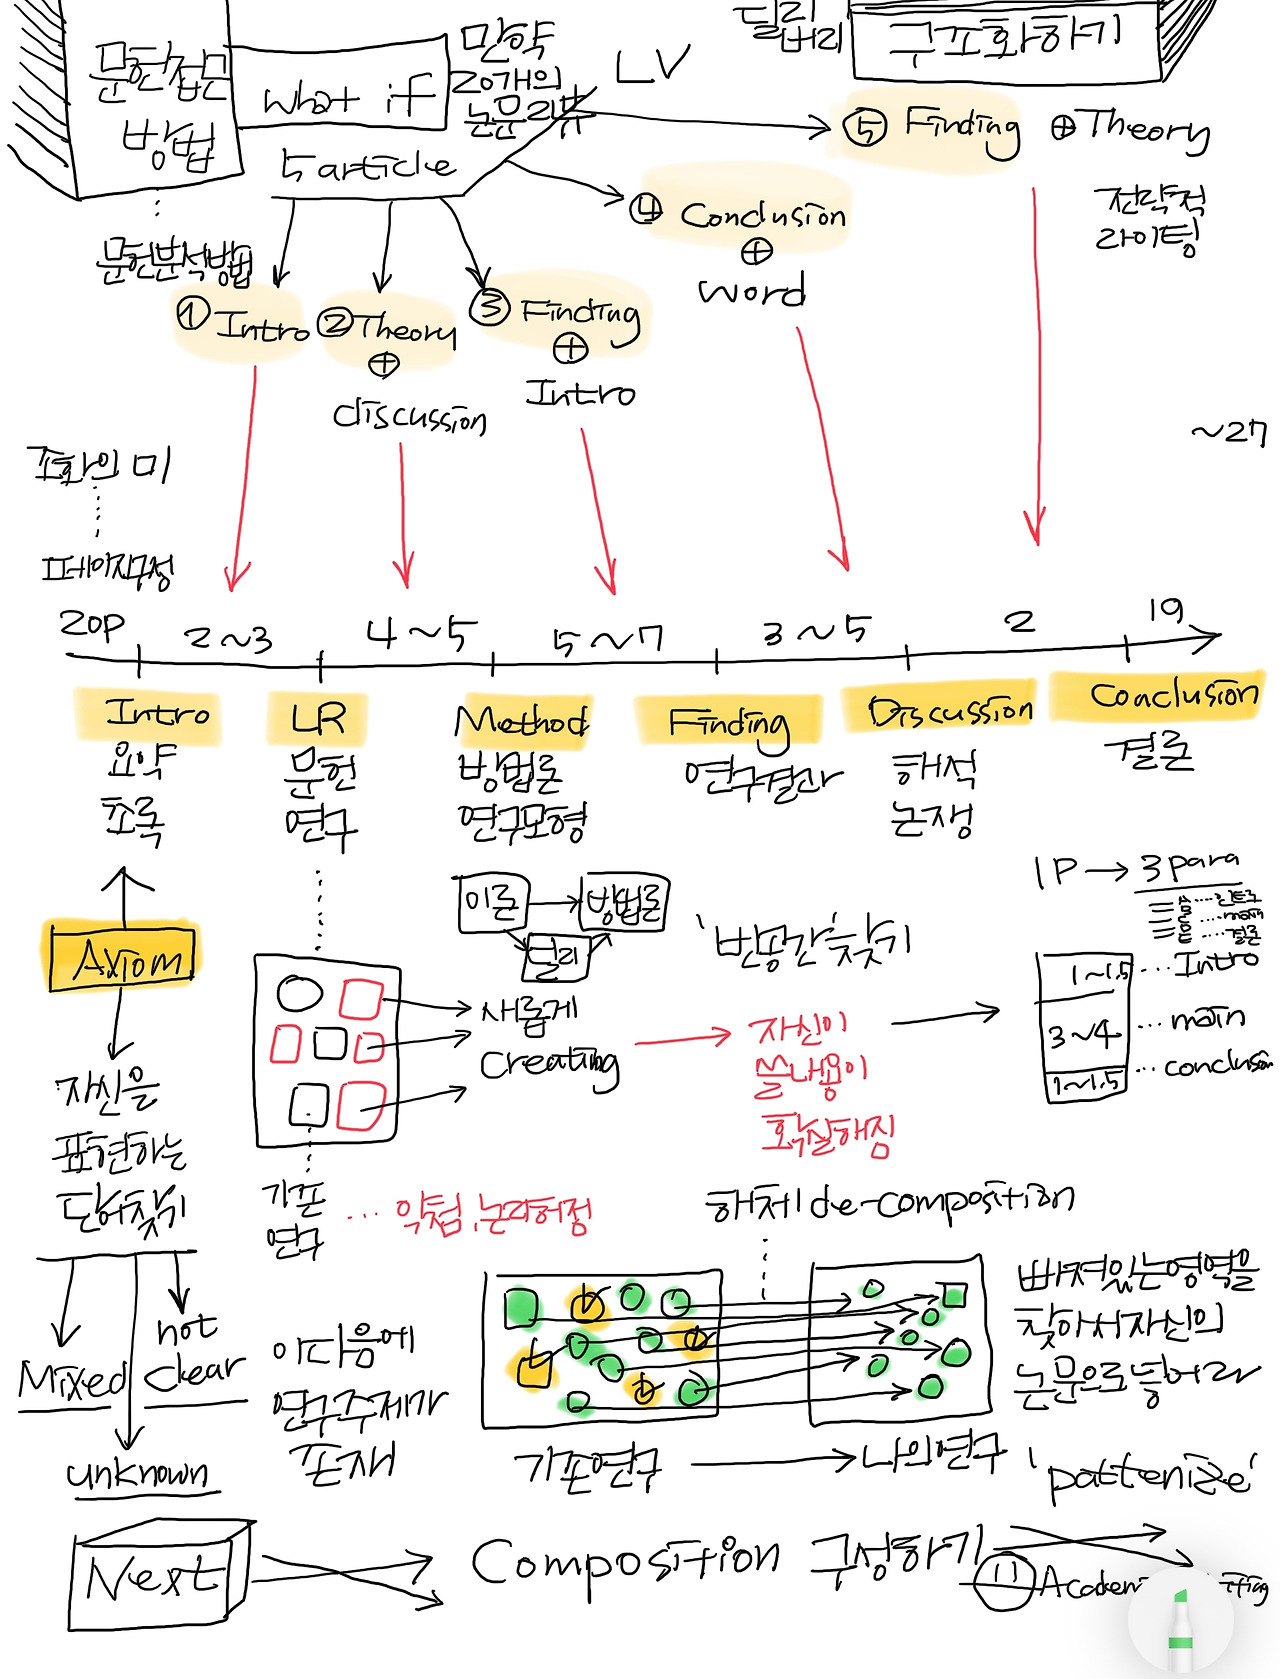 문헌접근
방법
what if
만약
20개의
논문리뷰
LV
딜리
버리
구조화하기
5 article
⑤ Finding ⊕ Theory
전략적
라이팅
④ Conclusion
⊕
word
문헌분석방법
① Intro
② Theory
⊕
discussion
③ Finding
⊕
Intro
~27
조화의 미
페이지구성
20p 2~3 4~5 5~7 3~5 2 19
Intro
요약
초록
LR
문헌
연구
Method
방법론
연구모형
Finding
연구결과
Discussion
해석
논쟁
Conclusion
결론
Axiom
자신을
표현하는
단어찾기
Mixed
not
clear
unknown
이론
방법론
딜리
새롭게
creating
기존
연구
... 약점, 논리허점
이다음에
연구주제가
존재
'빈공간'찾기
자신이
쓸내용이
확실해짐
1P → 3 para
인트로
main
결론
1~1.5 ... Intro
3~4 ... main
1~1.5 ... conclusion
해체 | de-composition
기존연구 → 나의연구
빠져있는영역을
찾아서자신의
논문으로넣어라
'pattenize'
Next
Composition 구성하기
11